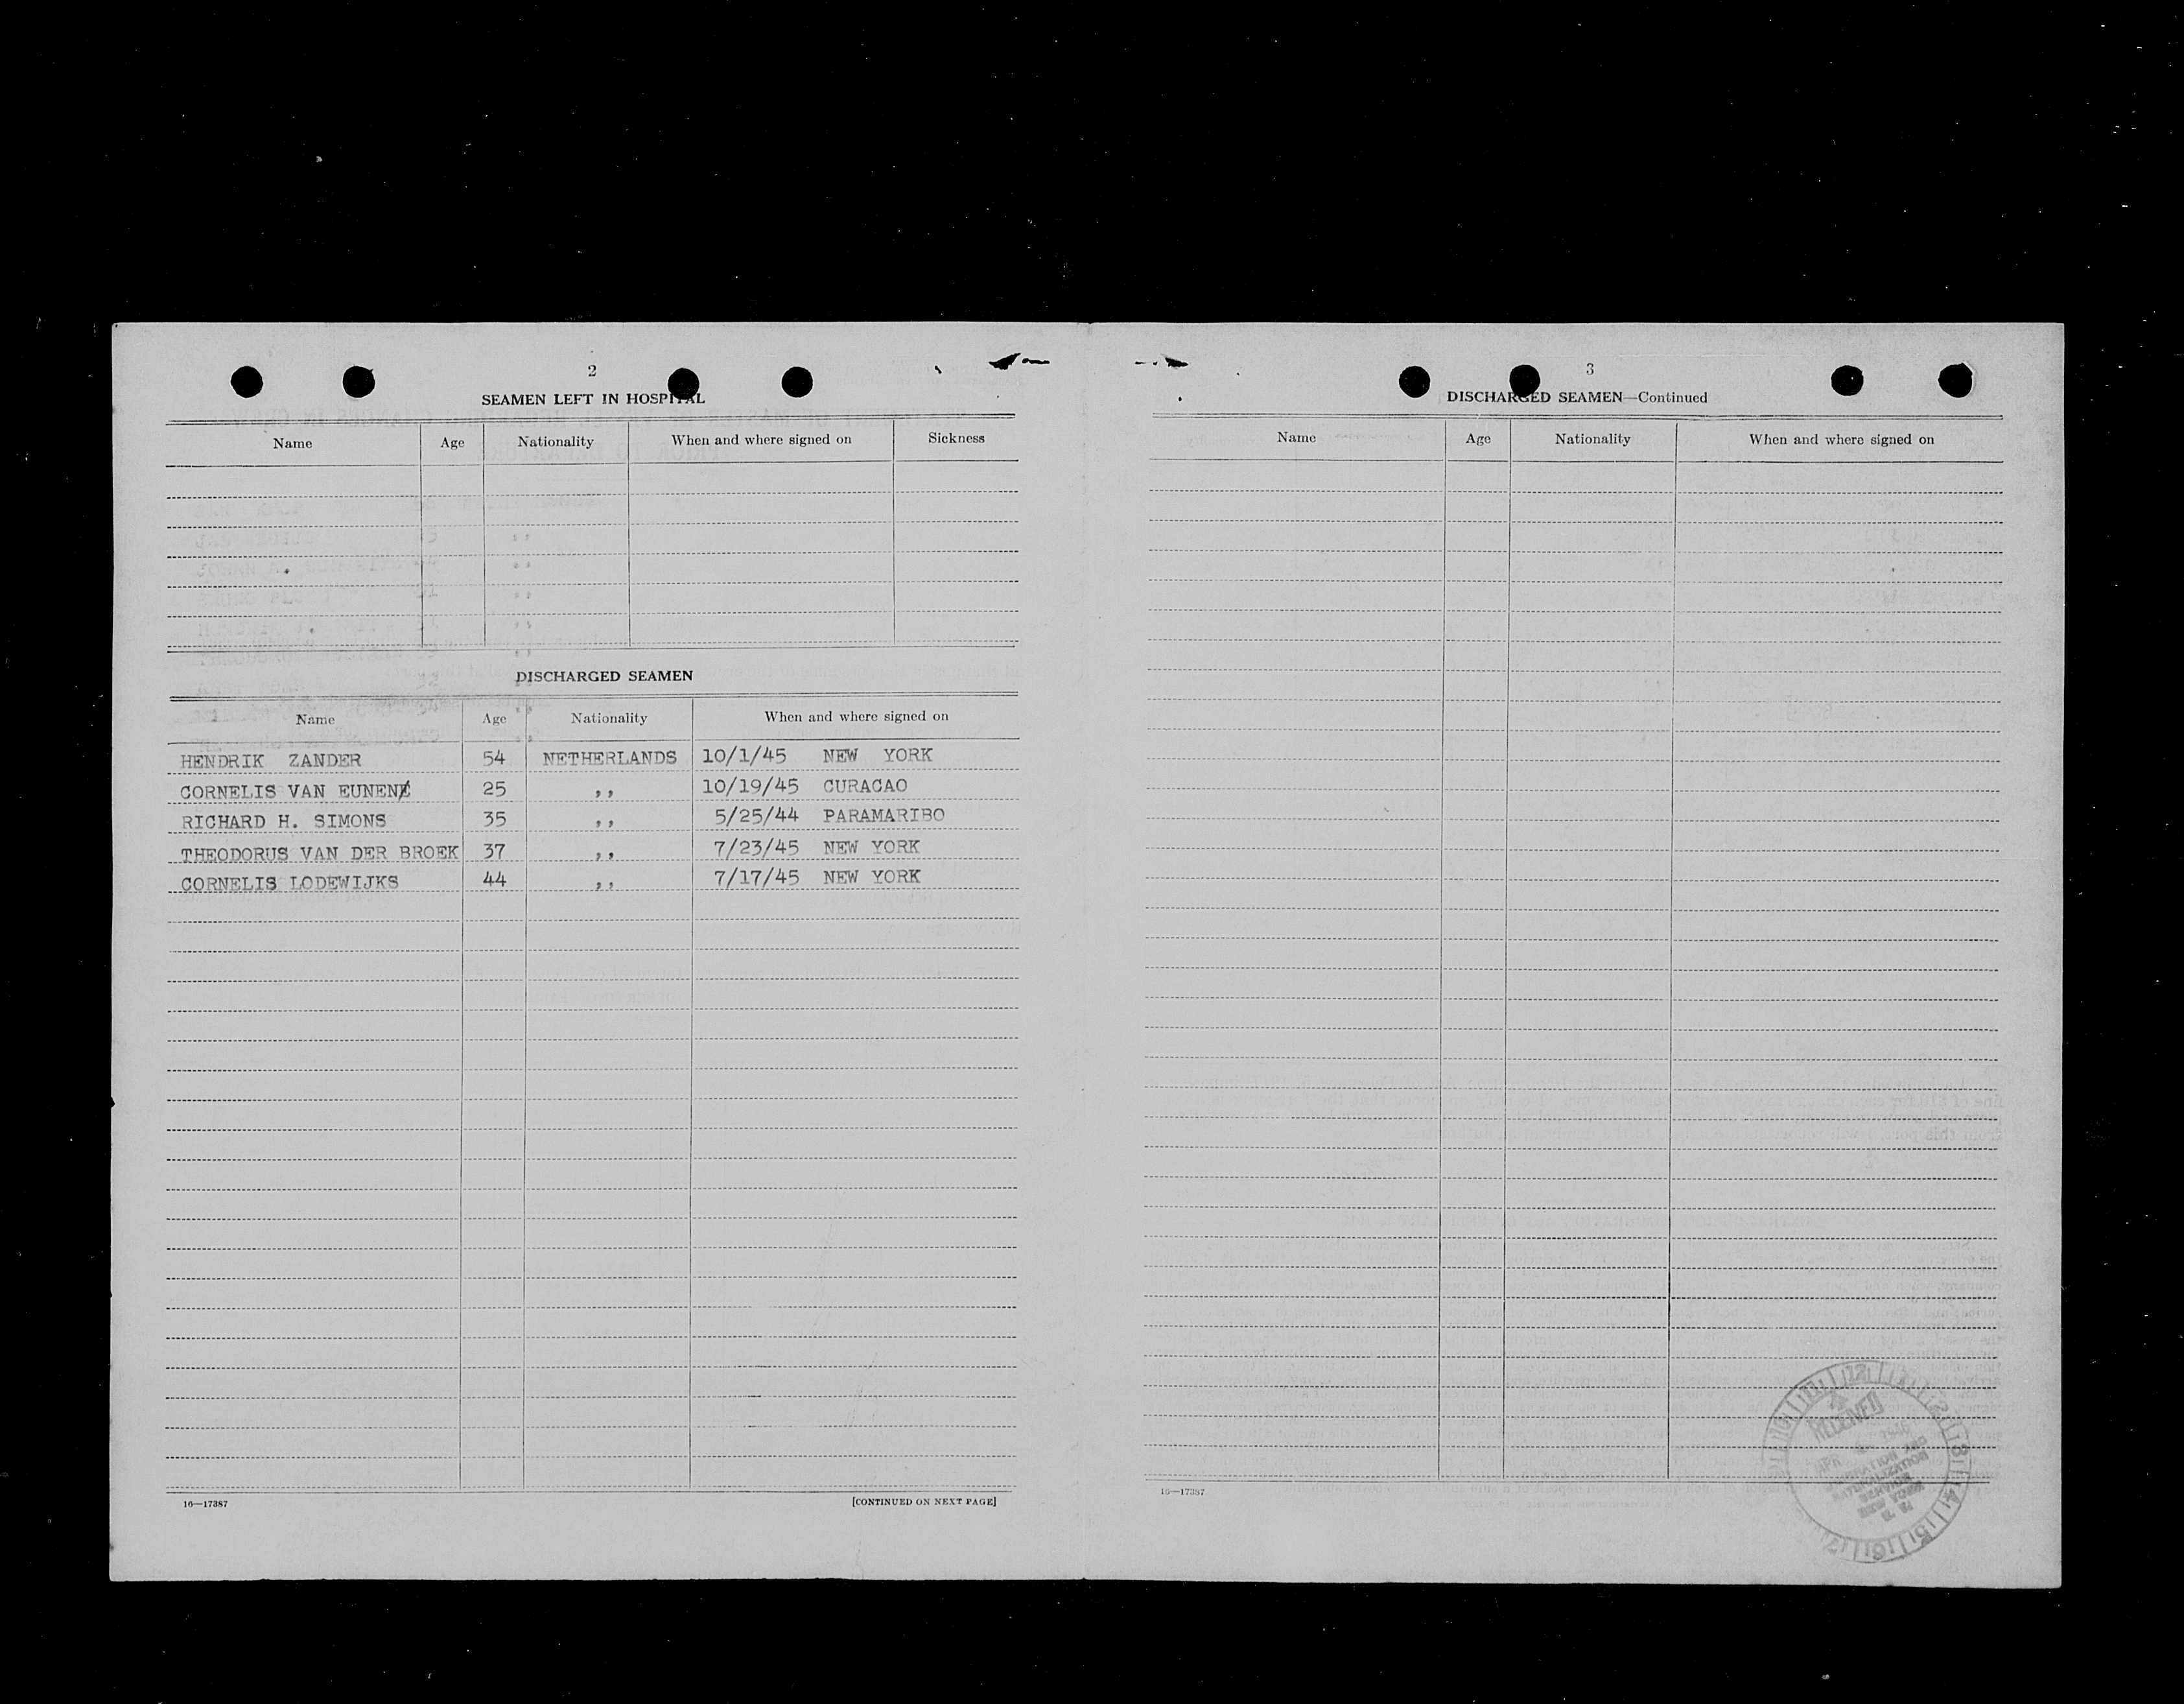 2
SEAMEN LEFT IN HOSPITAL
Name Age Nationality When and where signed on Sickness
DISCHARGED SEAMEN
Name Age Nationality When and where signed on
HENDRIK ZANDER 54 NETHERLANDS 10/1/45 NEW YORK
CORNELIS VAN EUNEN 25 ,, 10/19/45 CURACAO
RICHARD H. SIMONS 35 ,, 5/25/44 PARAMARIBO
THEODORUS VAN DER BROEK 37 ,, 7/23/45 NEW YORK
CORNELIS LODEWIJKS 44 ,, 7/17/45 NEW YORK
16—17387 [CONTINUED ON NEXT PAGE]
3
DISCHARGED SEAMEN—Continued
Name Age Nationality When and where signed on
16—17387
RECEIVED